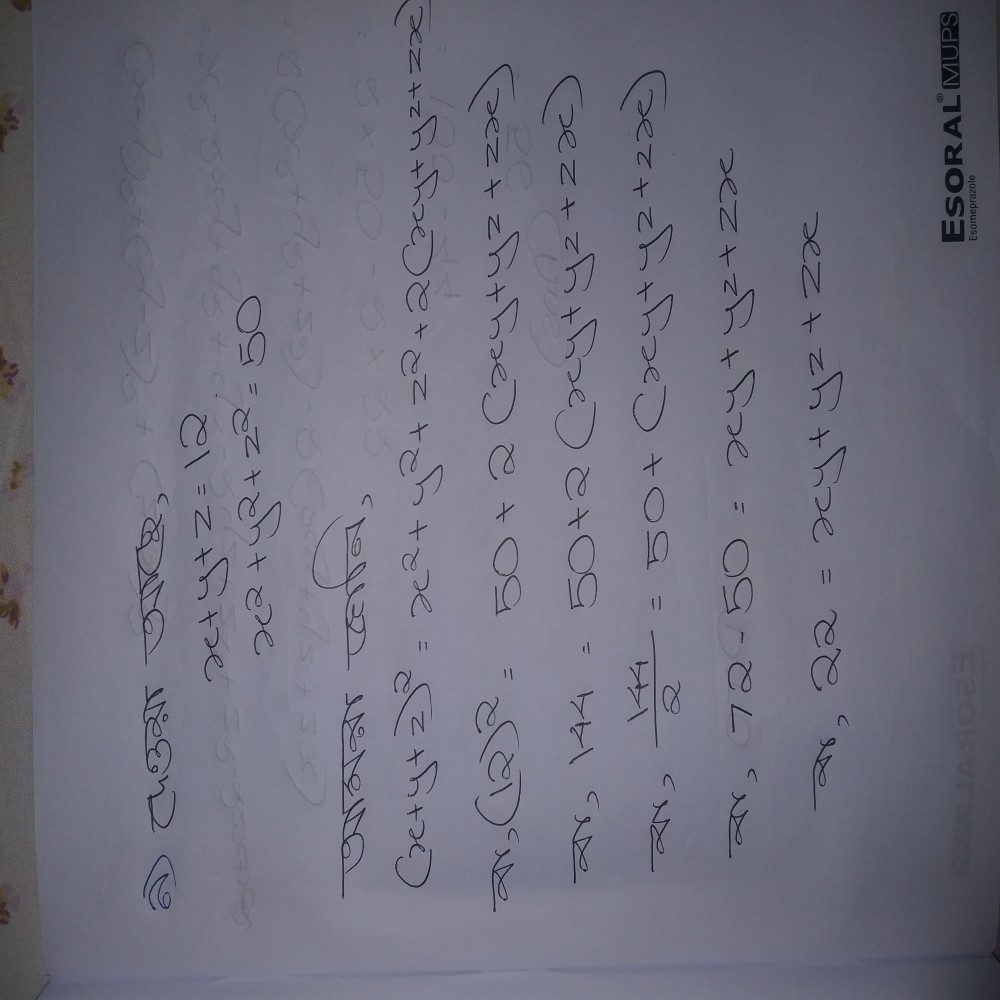 ২) দেওয়া আছে,
x+y+z=12
x²+y²+z²=50
আমরা জানি,
(x+y+z)² = x²+y²+z²+2(xy+yz+zx)
বা, (12)² = 50+2(xy+yz+zx)
বা, 144 = 50+2(xy+yz+zx)
বা, 144/2 = 50+(xy+yz+zx)
বা, 72-50 = xy+yz+zx
বা, 22 = xy+yz+zx
ESORAL® MUPS
Esomeprazole